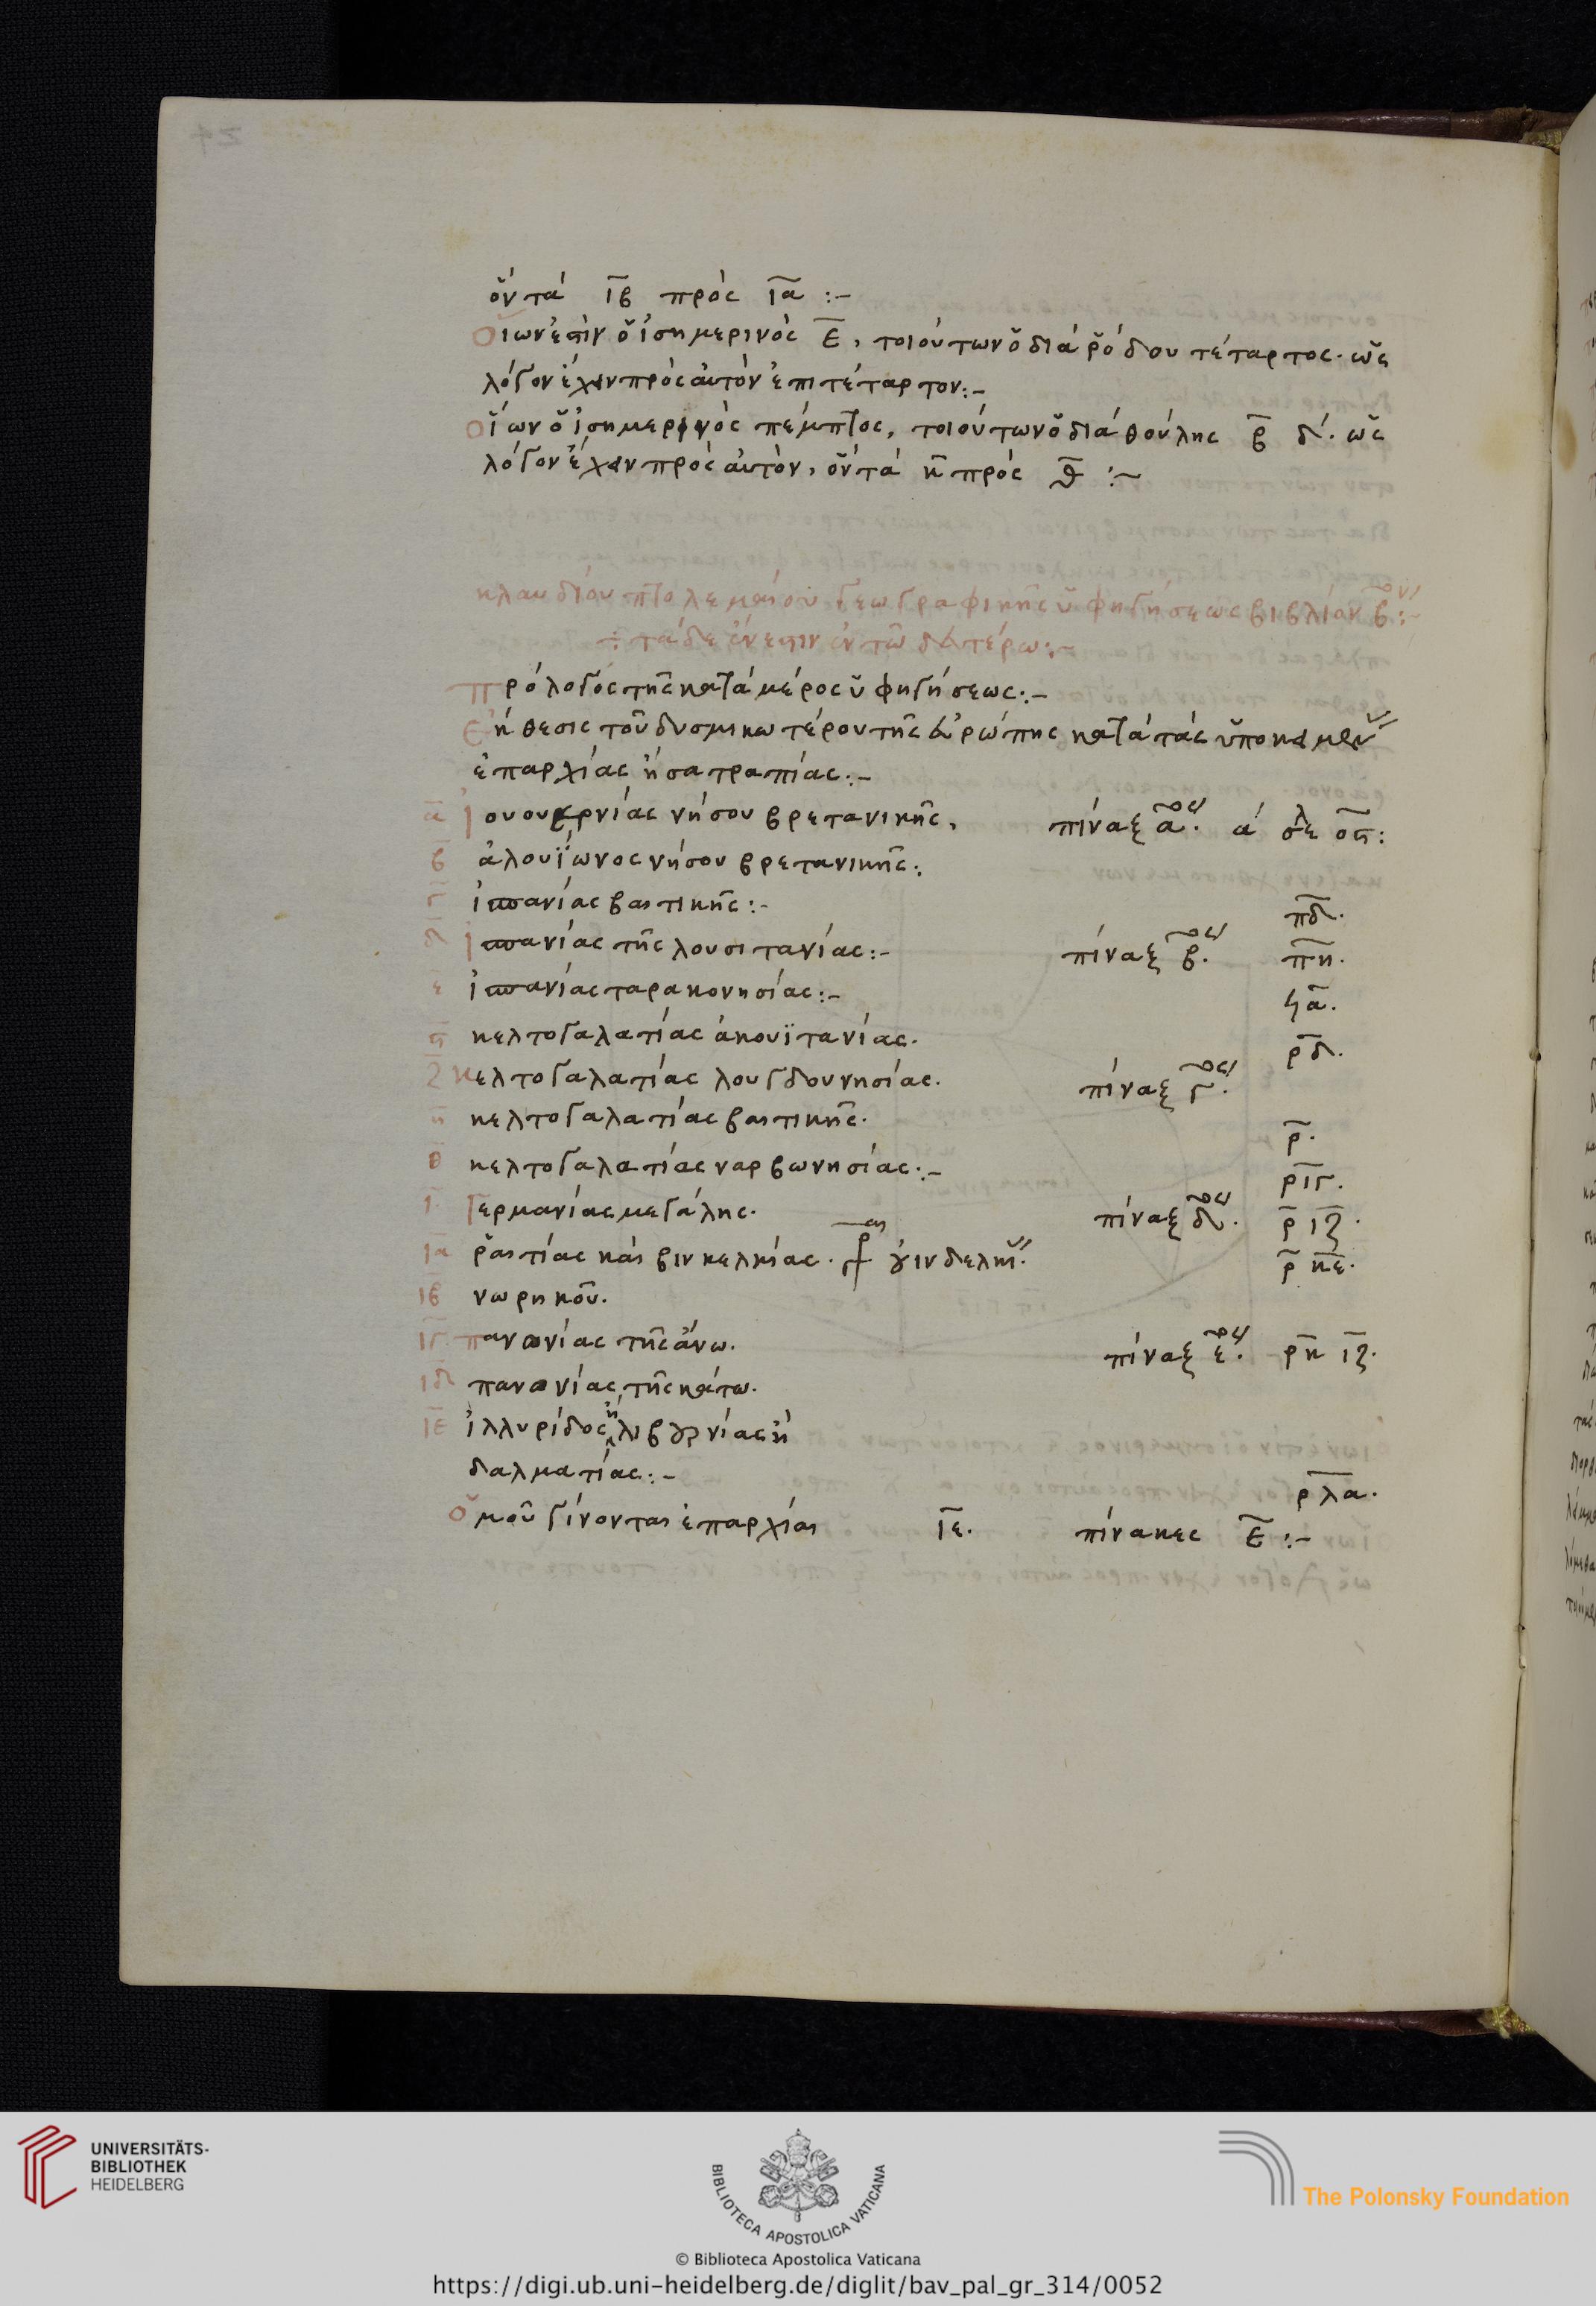 ὃν τὰ ιβ πρὸς ια :-
Οἵων ἐστὶν ὁ ἰσημερινὸς ε, τοιούτων ὁ διὰ ῥόδου τέταρτος. ὡς
λόγον ἔχειν πρὸς αὐτὸν ἐπιτέταρτον:-
οἵων ὁ ἰσημερινὸς πέμπτος, τοιούτων ὁ διὰ θούλης β δ. ὡς
λόγον ἔχειν πρὸς αὐτὸν, ὃν τὰ κ πρὸς θ :-
κλαυδίου πτολεμαίου γεωγραφικῆς ὑφηγήσεως βιβλίον β:-
÷ τάδε ἔνεστιν ἐν τῶ δευτέρω:-
Πρόλογος τῆς κατὰ μέρος ὑφηγήσεως:-
Ἔκθεσις τοῦ δυσμικωτέρου τῆς εὐρώπης κατὰ τὰς ὑποκειμέν
ἐπαρχίας ἢ σατραπίας:-
α ἰουουερνίας νήσου βρετανικῆς, πίναξ αος. α
β ἀλουΐωνος νήσου βρετανικῆς:
γ ἱσπανίας βαιτικῆς:- πδ.
δ ἱσπανίας τῆς λουσιτανίας:- πίναξ βος. πη.
ε ἱσπανίας ταρακονησίας:- ϟα.
ϛ κελτογαλατίας ἀκουϊτανίας. ρδ.
ζ κελτογαλατίας λουγδουνησίας. πίναξ γος.
η κελτογαλατίας βαιτικῆς. ρ.
θ κελτογαλατίας ναρβωνησίας:- ριγ.
ι Γερμανίας μεγάλης. πίναξ δος. ρ ιζ.
ια ῥαιτίας καὶ βινκελκίας. γρ οὐινδελκ. ρ κε.
ιβ νωρηκοῦ.
ιγ πανωνίας τῆς ἄνω. πίναξ εος. ρκ ιζ.
ιδ πανωνίας τῆς κάτω.
ιε ἰλλυρίδος ἢ λιβουρνίας ἢ
δαλματίας:- ρλα.
ὁμοῦ γίνονται ἐπαρχίαι ιε. πίνακες ε :-
UNIVERSITÄTS-
BIBLIOTHEK
HEIDELBERG
BIBLIOTECA APOSTOLICA VATICANA
The Polonsky Foundation
© Biblioteca Apostolica Vaticana
https://digi.ub.uni-heidelberg.de/diglit/bav_pal_gr_314/0052